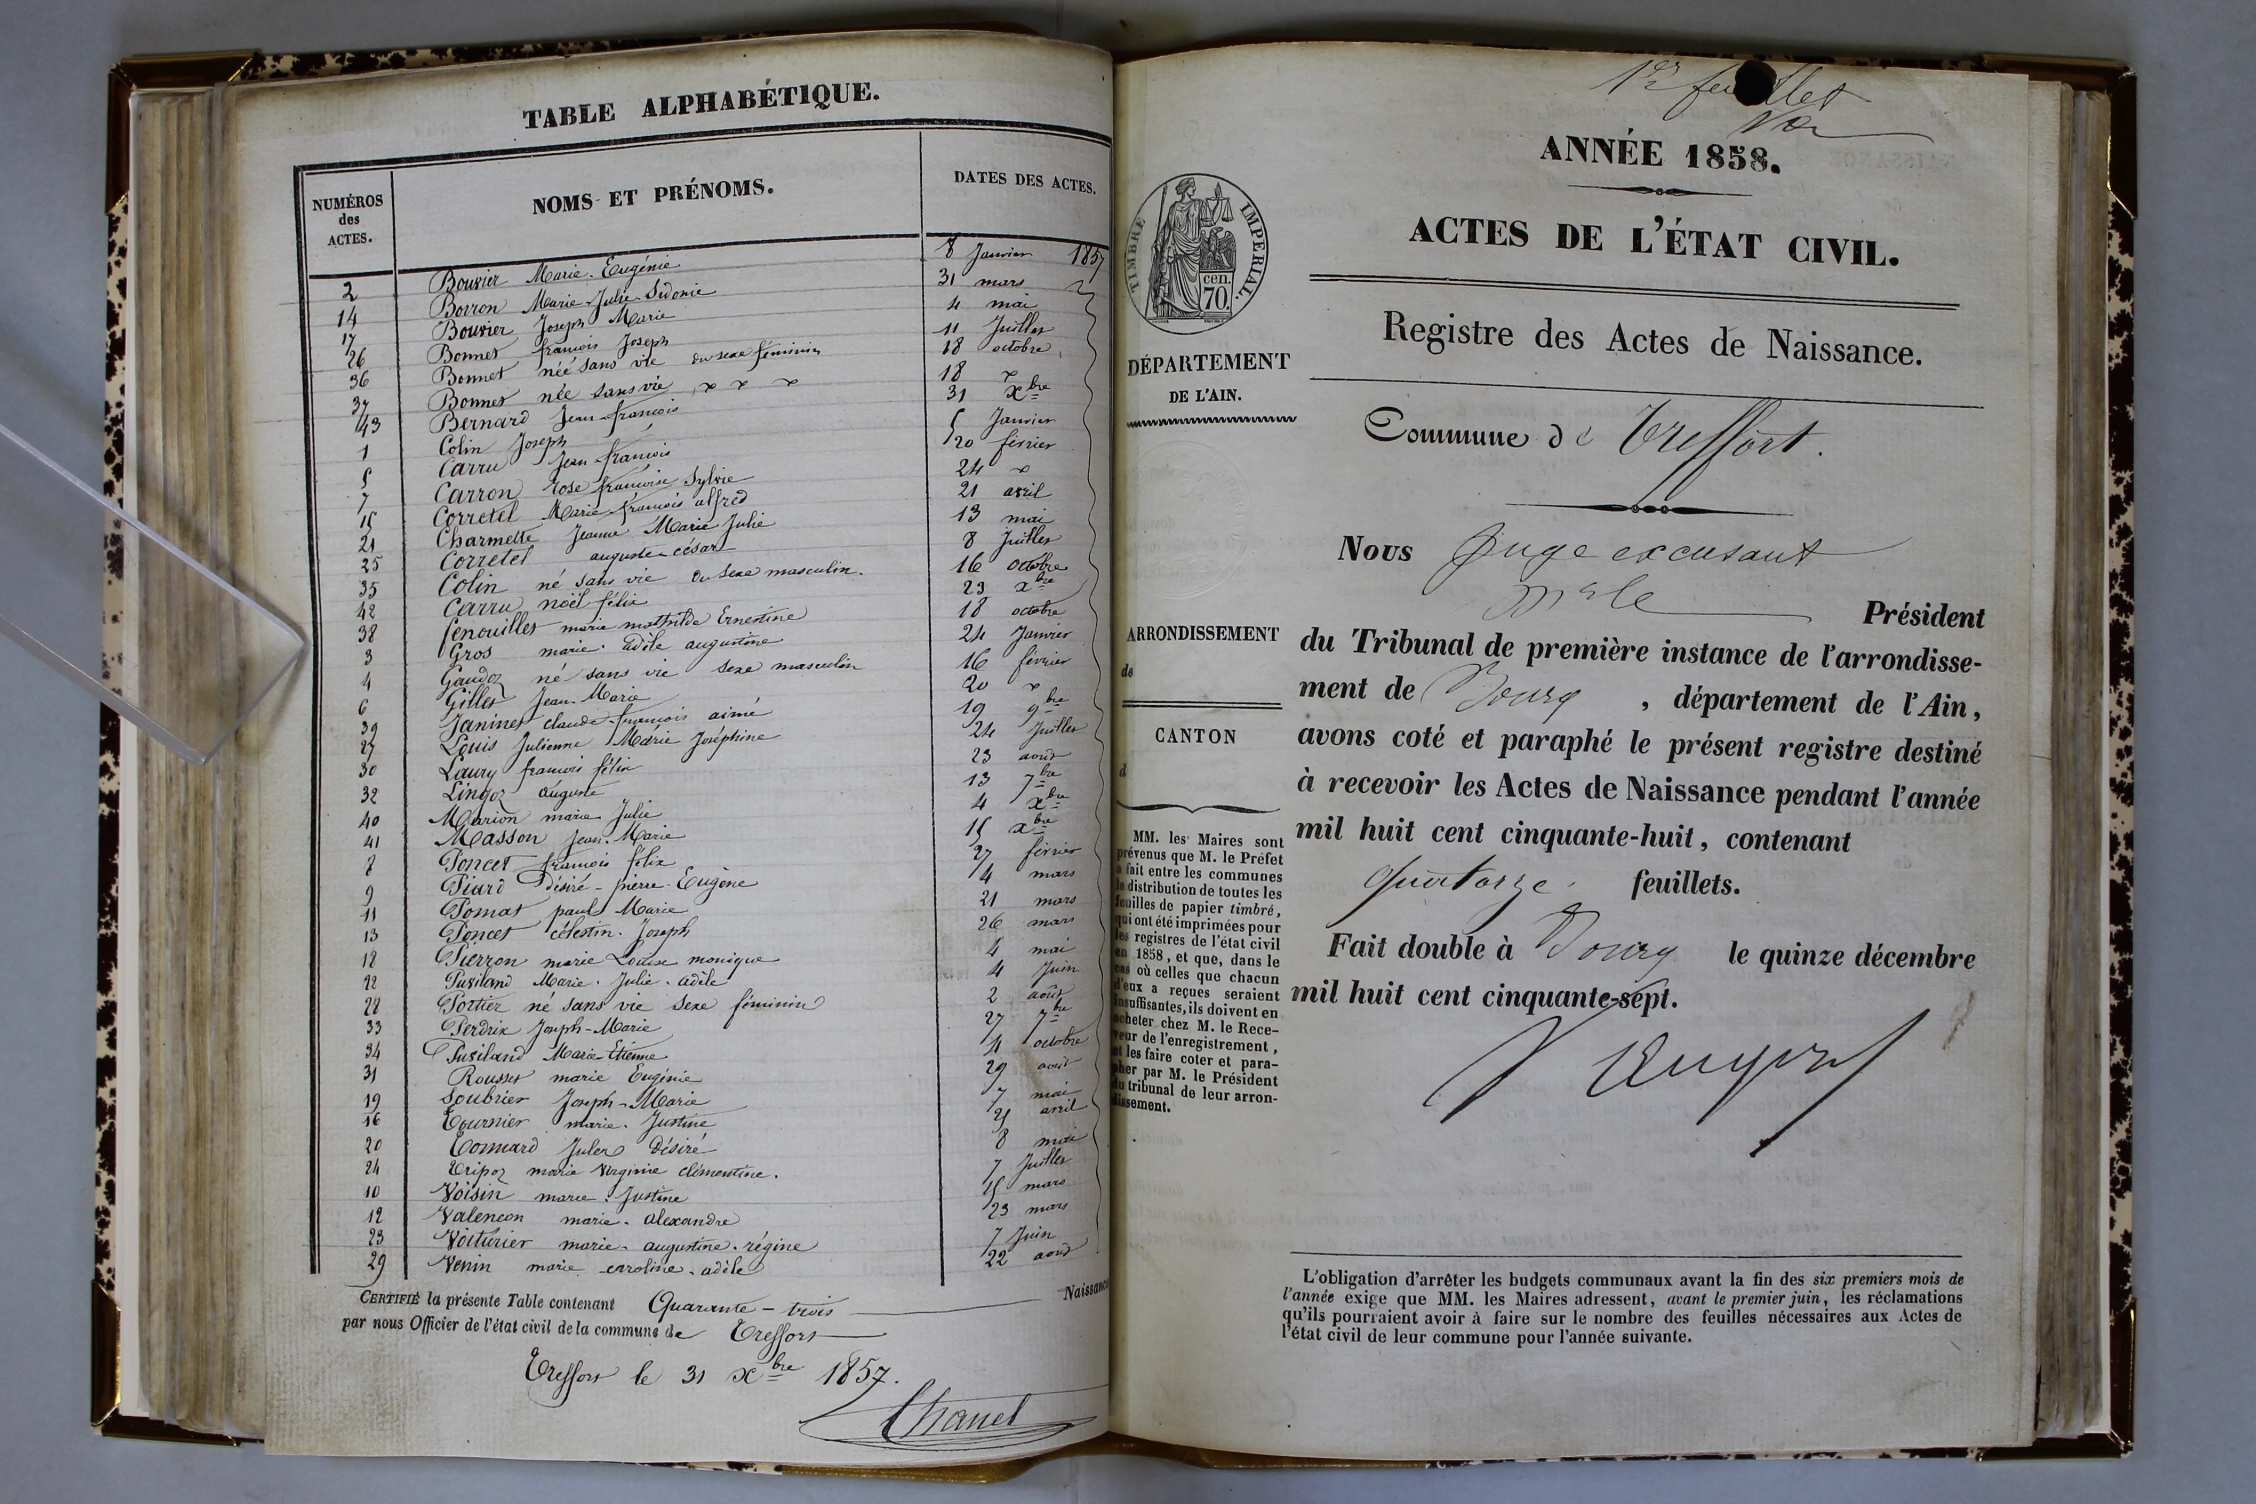 TABLE ALPHABÉTIQUE.
NUMÉROS des ACTES. NOMS ET PRÉNOMS. DATES DES ACTES.
2 Bouvier Marie Eugénie 8 Janvier 1857
14 Borron Marie Julie Sidonie 31 mars
17 Bouvier Joseph Marie 4 mai
26 Bonnet françois Joseph 11 Juillet
36 Bonnet née sans vie du sexe féminin 18 octobre
37 Bonnet née sans vie 18
43 Bernard Jean françois 31 Xbre
1 Colin Joseph 5 Janvier
5 Carru Jean françois 20 février
7 Carron rose françoise Sylvie 24
15 Corretel Marie françois alfred 21 avril
21 Charmette Jeanne Marie Julie 13 mai
25 Corretel auguste césar 8 Juillet
35 Colin né sans vie du sexe masculin. 16 octobre
42 Carru noël félix 23 xbre
38 fenouillet marie mathilde Ernestine 18 octobre
3 Gros marie adèle augustine 24 Janvier
4 Gaudoz né sans vie sexe masculin 16 février
6 Gillet Jean Marie 20
39 Janinet claude françois aimé 19 9bre
27 Louis Julienne Marie Joséphine 24 Juillet
30 Laury françois félix 23 aout
32 Lingoz auguste 13 7bre
40 Marion marie Julie 4 Xbre
41 Masson Jean Marie 15 xbre
8 Poncet françois félix 27 février
9 Piard Désiré - pierre Eugène 4 mars
11 Pomat paul Marie 21 mars
13 Poncet célestin Joseph 26 mars
18 Pierron marie Louise monique 4 mai
22 Puviland Marie Julie adèle 4 Juin
28 Portier né sans vie sexe féminin 2 aout
33 Perdrix Joseph-Marie 27 7bre
34 Puviland Marie-Etienne 4 octobre
31 Rousset marie Eugénie 29 aout
19 Soubrier Joseph-Marie 7 mai
16 Tournier marie. Justine 25 avril
20 Connard Jules Désiré 8 mai
24 Tripoz marie virginie clémentine. 7 Juillet
10 Voisin marie Justine 15 mars
12 Valencon marie. alexandre 23 mars
23 Voiturier marie. augustine. régine 7 Juin
29 Venin marie caroline. adèle 22 aout
CERTIFIÉ la présente Table contenant Quarante-trois Naissances
par nous Officier de l'état civil de la commune de Treffort
Treffort le 31 Xbre 1857.
Chanel
1er feuillet
ANNÉE 1858.
ACTES DE L'ÉTAT CIVIL.
Registre des Actes de Naissance.
TIMBRE IMPERIAL.
cen. 70.
DÉPARTEMENT
DE L'AIN.
ARRONDISSEMENT
de
CANTON
d
MM. les Maires sont
prévenus que M. le Préfet
a fait entre les communes
la distribution de toutes les
feuilles de papier timbré,
qui ont été imprimées pour
les registres de l'état civil
en 1858, et que, dans le
cas où celles que chacun
d'eux a reçues seraient
insuffisantes, ils doivent en
acheter chez M. le Rece-
veur de l'enregistrement,
et les faire coter et para-
pher par M. le Président
du tribunal de leur arron-
dissement.
Commune de Treffort.
Nous Juge excusant
Mr le Président
du Tribunal de première instance de l'arrondisse-
ment de Bourg, département de l'Ain,
avons coté et paraphé le présent registre destiné
à recevoir les Actes de Naissance pendant l'année
mil huit cent cinquante-huit, contenant
quatorze feuillets.
Fait double à Bourg le quinze décembre
mil huit cent cinquante-sept.
L'obligation d'arrêter les budgets communaux avant la fin des six premiers mois de
l'année exige que MM. les Maires adressent, avant le premier juin, les réclamations
qu'ils pourraient avoir à faire sur le nombre des feuilles nécessaires aux Actes de
l'état civil de leur commune pour l'année suivante.